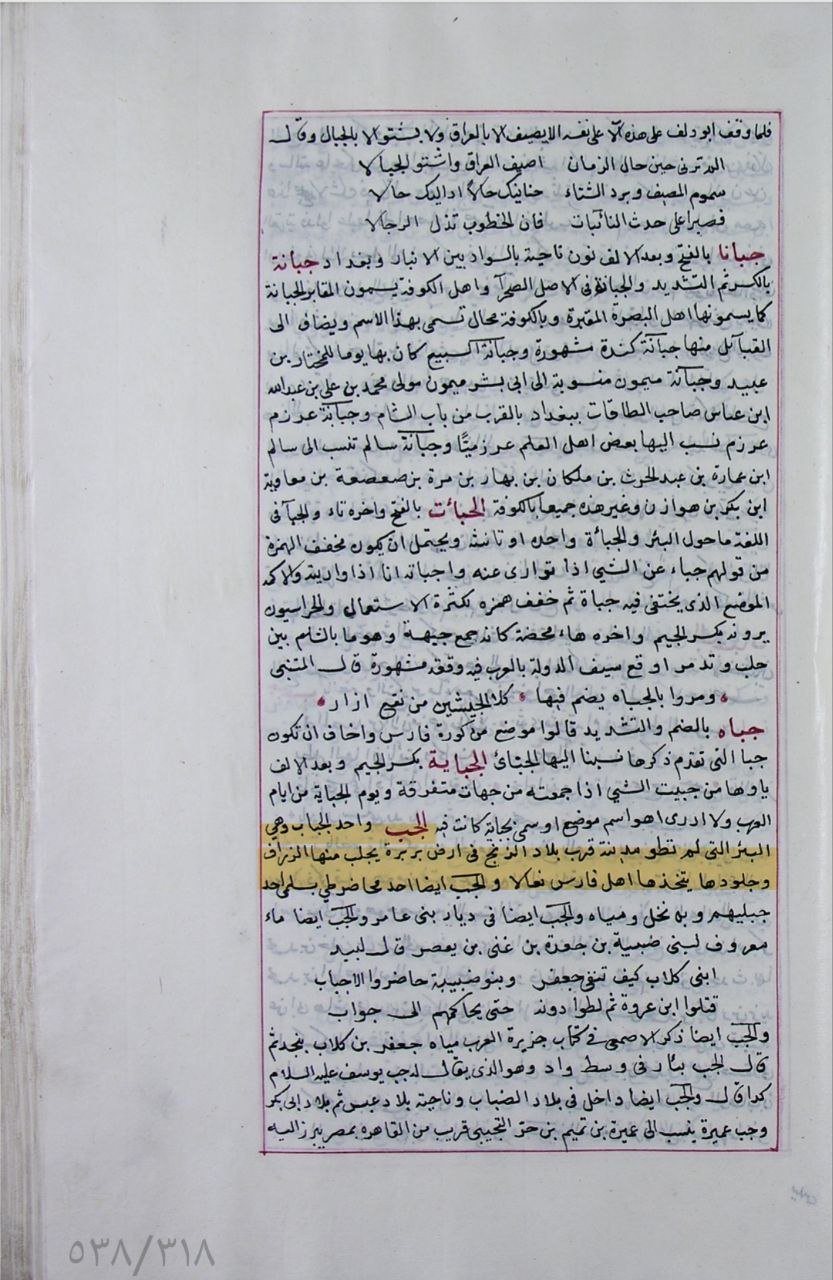 فلما وقف ابو دلف على هذه آلا على نفسه الا يصيف الا بالعراق ولا يشتو الا بالجبال وقال
الم ترني حين حال الزمان اصيف العراق واشتو الجبالا
سموم المصيف وبرد الشتاء حنانيك حالا ازالتك حالا
فصبرا على حدث النائبات فان الخطوب تذل الرجالا
جبانا بالفتح وبعد الالف نون ناحية بالسواد بين الانبار وبغداد جبانة
بالكسر ثم التشديد والجبانة في الاصل الصحرآ واهل الكوفة يسمون المقابر الجبانة
كما يسمونها اهل البصرة المقبرة وبالكوفة محال تسمى بهذا الاسم ويضاف الى
القبآئل منها جبانة كندة مشهورة وجبانة السبيع كان بها يوما للمختار بن
عبيد وجبانة ميمون منسوبة الى ابى بشر ميمون مولى محمد بن علي بن عبدالله
ابن عباس صاحب الطاقات ببغداد بالقرب من باب الشام وجبانة عرزم
عرزم نسب اليها بعض اهل العلم عرزميًّا وجبانة سالم تنسب الى سالم
ابن عمارة بن عبد الحرث بن ملكان بن نهار بن مرة بن صعصعة بن معاوية
ابن بكر بن هوازن وغير هذه جميعا بالكوفة الجبأت بالفتح واخره تاء والجبآ فى
اللغة ما حول البئر والجبأة واحده او تانثه ويحتمل ان يكون مخفف الهمزة
من قولهم جباء عن الشيئ اذا توارى عنه واجباته انا اذا واريته والاكمه
الموضع الذى يختفى فيه جباة ثم خفف همزه لكثرة الاستعمال والخراسيون
يرونه بكسر الجيم واخره هاء محضة كانه جمع جبهة وهو ما بالشام بين
حلب وتدمر اوقع سيف الدولة بالعرب فيه وقعه مشهورة قال المتنبى
ومروا بالجباه يضم فيها كلا الجيشين من نقع ازار
جباه بالضم والتشديد قالوا موضع من كورة فارس واخاف ان تكون
جبا التى تقدم ذكرها نسبنا اليها الجبائ الجباية بكسر الجيم وبعد الالف
ياوها من جبيت الشيئ اذا جمعته من جهات متفرقة ويوم الجباية من ايام
العرب ولا ادرى اهو اسم موضع او سمى بجباية كانت فيه الجب واحد الجباب وهى
البئر التى لم تطو مدينة قرب بلاد الزنج فى ارض بربرة يجلب منها الزراف
وجلودها يتخذها اهل فارس نعالا والجب ايضا احد محاضر طي بسلمى احد
جبليهم وبه نخل ومياه والجب ايضا فى ديار بنى عامر والجب ايضا ماء
معروف لبنى ضبيبة بن جعدة بن غنى بن يعصر قال لبيد
ابنى كلاب كيف تنفى جعفر وبنو ضبيبة حاضروا الاجباب
قتلوا ابن عروة ثم لطوا دونه حتى يحاكمهم الى جواب
والجب ايضا ذكر الاصمعى في كتاب جزيرة العرب مياه جعفر بن كلاب بنجد ثم
قال الجب بئار فى وسط واد وهو الذى يقال له جب يوسف عليه السلام
كذا قال والجب ايضا داخل فى بلاد الضباب وناحية بلاد عبس ثم بلاد ابى بكر
وجب عميرة ينسب الى عميرة بن تميم بن جزء التجيبى قريب من القاهرة بمصر يبرز اليه
٥٣٨/٣١٨